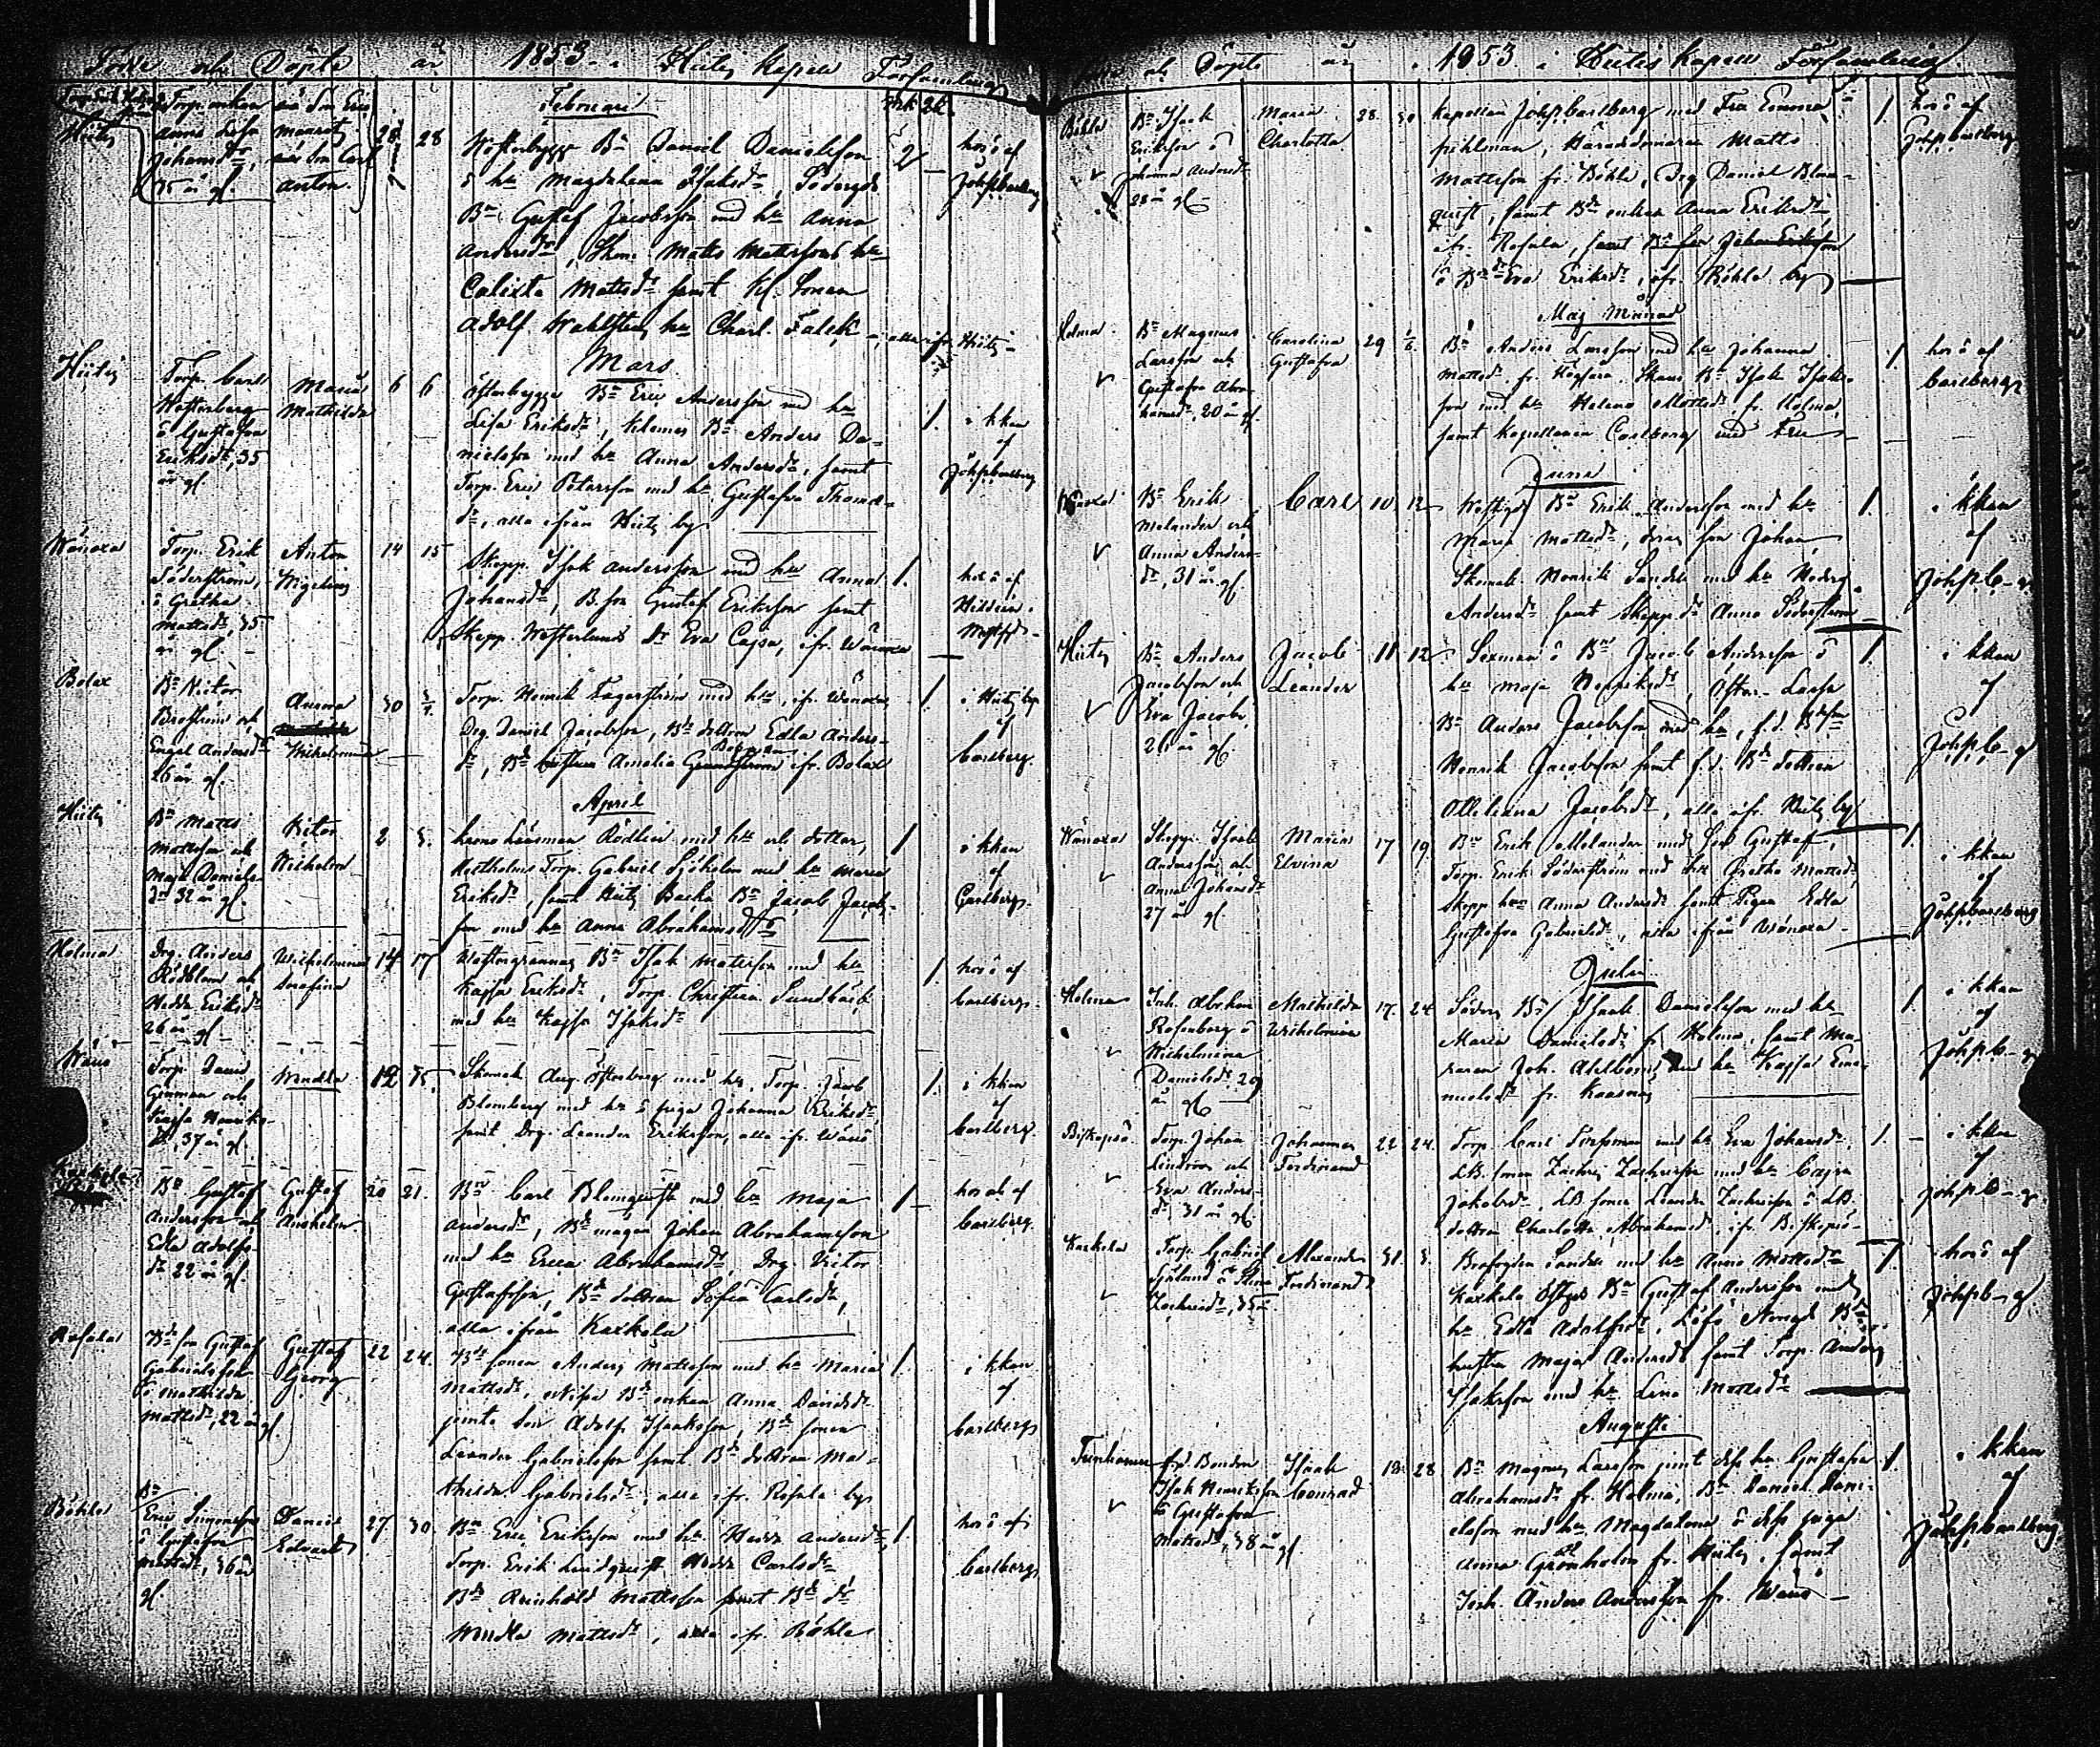 Födde och Döpte år 1853 i Hiitis Kapell Församling
Februari
Hiitis
Torp. enkan
Anna Lisa
Johansdr,
35 år gl.
Anton.
28 28
Westerbygge Bn Daniel Danielsson
o hu Magdalena Isaksdr, Södergds
Bn Gustaf Jacobsson med hu Anna
Andersdr, Skom. Matts Mattssons hu
Calixta Mattsdr samt Kl. Sonen
Adolf Wahlsten, hu Charl. Falck, alla ifr. Hiitis
2
hos o af
Joh. P. Carlberg
Mars
Hiitis
Torp. Carl
Westerberg
o Gustafva
Eriksdr, 35
år gl.
Maria
Mathilda
6 6
Österbygge Bn Eric Andersson med hu
Lisa Eriksdr, Klemes Bn Anders Da-
nielsson med hu Anna Andersdr, samt
Torp. Eric Petersson med hu Gustafva Thomas-
dr, alla ifrån Hiitis by
1.
i kkan
af
Joh. P. Carlberg
Wänoxa
Torp. Erik
Söderström,
o Gretha
Mattsdr, 35
år gl.
Anton
14 15
Skepp. Isak Andersson med hu Anna
Johansdr, B. son Gustaf Eriksson samt
Skepp. Westerlunds dr Eva Cajsa, ifr. Wänoxa
1.
hos o af
Bolax
Bn Victor
Broström och
Engel Andersdr
26 år gl.
Aurora
Wilhelmina
30 3/4
Torp. Henrik Fagerström med hu, ifr. Wänoxa,
Drg. Daniel Jacobsson, Bd dottren Edla Anders-
dr, Bd hustrun Amalia Boman ifr. Bolax
1.
i Hiitis by
af
Carlberg.
April
Hiitis
Bn Matts
Mattsson och
Maja Daniels-
dr 32 år gl.
Victor
Wilhelm
2 3.
Krono Länsman Rödlin med hu och dotter,
Torp. Gabriel Sjöholm med hu Maria
Eriksdr, samt Hiitis Backa Bn Jacob Jacobs-
son med hu Anna Abrahamsdr
1
i kkan
af
Carlberg.
Holma
Drg. Anders
Rödblom och
Hedda Eriksdr
26 år gl.
Wilhelmina
Serafina
14 17
Westergrannas Bn Isak Matsson med hu
Kajsa Eriksdr, Torp. Christian Sundbäck
med hu Kajsa Isaksdr
1.
hos o af
Carlberg.
Wänö
Torp. David
Genman och
Kajsa Henriks-
dr, 37 år gl.
Wendla
12
Skomak. Aug. Österberg med hu, Torp. Jacob
Blomberg med hu o piga Johanna Eriksdr
samt Drg. Leander Eriksson, alla ifr. Wänö
1.
i kkan
af
Carlberg.
Kaxkela
Bn Gustaf
Andersson och
Edla Adolfs-
dr 22 år gl.
Gustaf
Anshelm
20 21.
Bn Carl Blomqvist med hu Maja
Andersdr, Bd mågen Johan Abrahamsson
med hu Erica Abrahamsdr, Drg. Victor
Gustafsson, Bd dottren Sofia Carlsdr,
alla ifrån Kaxkela
1
hos och af
Carlberg.
Rosala
Bd son Gustaf
Gabrielsson
o Mathilda
Mattsdr, 22 år gl.
Gustaf
Georg
22 24.
Bd sonen Anders Mattsson med hu Maria
Mattsdr, Bd enkan Anna Danielsdr
jemte son Adolf Isaksson, Bd sonen
Leander Gabrielsson samt Bd dottran Ma-
thilda Gabrielsdr, alla ifr. Rosala by
1.
i kkan
af
Carlberg
Böhle
Bn
Eric Simonsson
o Gustafva
Mattsdr, 36 år
gl.
Daniel
Edvard
27 30.
Bn Eric Eriksson med hu Hedda Andersdr,
Torp. Erik Lindqvist Hedda Carlsdr
Bd Reinhold Mattsson samt Bd dr
Wendla Mattsdr, alla ifr. Böhle
1.
hos o af
Carlberg
Födde och Döpte år 1853 i Hiitis Kapell Församling
Böhle
Bn Isak
Eriksson o
Johanna Andersdr
28 år gl.
Maria
Charlotta
28 30
Kapellan Joh. P. Carlberg med Fru Emma
Pihlman, Häradsdomaren Matts
Mattsson fr. Böhle, Drg Daniel Blom-
qvist, samt Bd enkan Anna Eriksdr,
ifr. Rosala, samt Bd son Johan Eriksson
o Bd dr Eva Eriksdr, ifr. Böhle by
1.
hos o af
Joh. P. Carlberg
Maj Månad
Holma
Bn Magnus
Larsson och
Gustafva Abra-
hamsdr, 20 år gl.
Carolina
Gustafva
29 1/6
Bn Anders Larsson med hu Johanna
Mattsdr fr. Högsåra, Skans Bn Isak Isaks-
son med hu Helena Mattsdr fr. Holma,
samt Kapellanen Carlberg med Fru
1.
hos o af
Carlberg
Juni
Wänoxa
Bn Erik
Melander och
Anna Anders-
dr, 31 år gl.
Carl
10 12
Westgds Bn Erik Andersson med hu
Maria Mattsdr, deras son Johan,
Skomak. Henrik Sandell med hu Hedvig
Andersdr samt Skepp. dr Anna Söderström
1.
i kkan
af
Joh. P. C-g
Hiitis
Bn Anders
Jacobsson och
Eva Jacobs-
26 år gl.
Jacob
Leander
11 12
Sexman o Bn Jacob Andersson o
hu Maja Henriksdr, Öster-Lassa
Bn Anders Jacobsson med hu, f.d. Bd son
Henrik Jacobsson samt f.d. Bd dottren
Ottiliana Jacobsdr, alla ifr. Hiitis by
1.
i kkan
af
Joh. P. C-g
Wänoxa
Skepp. Isak
Andersson och
Anna Johansdr
27 år gl.
Maria
Elvina
17 19.
Bn Erik Melander med son Gustaf,
Torp. Erik Söderström med hu Gretha Mattsdr,
Skepp. hu Anna Andersdr samt Pigan Edla
Gustafva Gabrielsdr, alla ifrån Wänoxa
1.
i kkan
af
Joh. P. Carlberg
Juli
Holma
Inh. Abraham
Rosenberg o
Wilhelmina
Danielsdr 29
år gl
Mathilda
Wilhelmina
17. 24
Söderg. Bn Isak Danielsson med hu
Maria Danielsdr fr. Holma, samt Mu-
raren Joh. Ahlbom med hu Kajsa Ema-
nuelsdr fr. Kasnäs
1.
i kkan
af
Joh. P. C-g
Biskopsö.
Torp. Johan
Lindroos och
Eva Anders-
dr, 31 år gl
Johannes
Ferdinand
22 24.
Torp. Carl Torsman med hu Eva Johansdr,
LB. sonen Zachris Zachrisson med hu Cajsa
Jakobsdr, LB sonen Leander Zachrisson o LB.
dottren Charlotta Abrahamsdr, ifr. Biskopsö
1.
i kkan
af
Joh. P. C-g
Kaxkela
Torp. Gabriel
Sjölund o Stina
Zachrisdr, 35 år
Alexander
Ferdinand
31. 3.
Brofogden Sandell med hu Anna Mattsdr
Kaxkela Östgds Bn Gustaf Andersson med
hu Edla Adolfsdr, Löfö Norrgds Bd
hustru Maja Andersdr samt Torp. Anders
Isaksson med hu Lena Mattsdr
1.
hos o af
Joh. P. C-g
Augusti
f.d. Bonden
Isak Henriksson
o Gustafva
Mattsdr, 38 år gl.
Isaak
Conrad
18. 28
Bn Magnus Larsson jemt dess hu Gustafva
Abrahamsdr fr. Holma, Bn Daniel Dani-
elsson med hu Magdalena o dess piga
Anna Grönholm fr. Hiitis, samt
Inh. Anders Andersson fr. Wänö
1.
i kkan
af
Joh. P. Carlberg